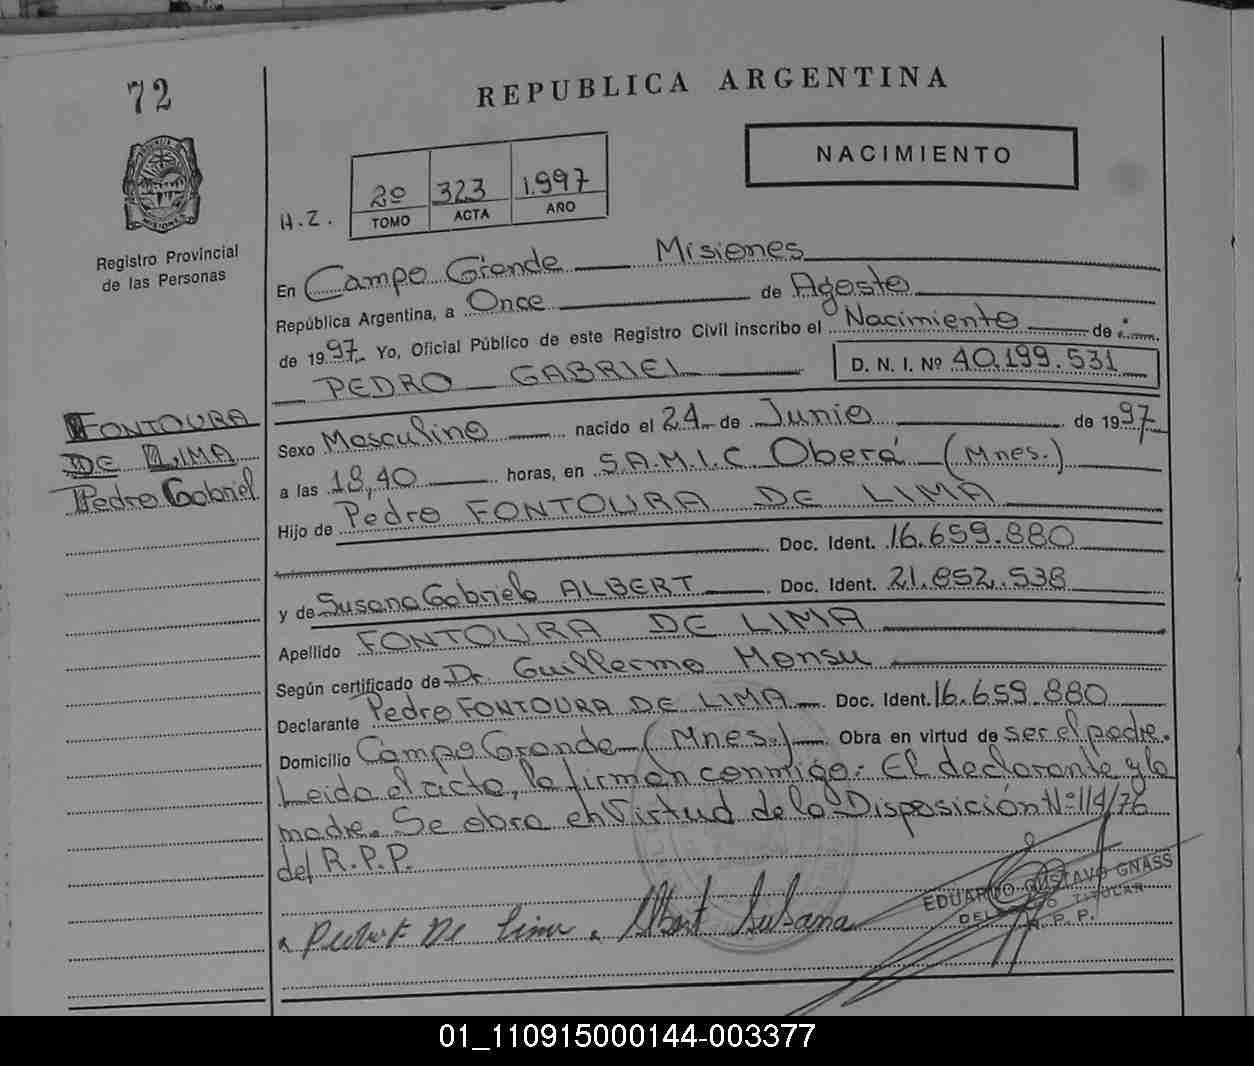 72
REPUBLICA ARGENTINA
NACIMIENTO
H.Z.
2º 323 1.997
TOMO ACTA AÑO
Registro Provincial
de las Personas
En Campo Grande Misiones
República Argentina, a Once de Agosto
de 1997. Yo, Oficial Público de este Registro Civil inscribo el Nacimiento de :
PEDRO GABRIEL D. N. I. Nº 40.199.531
FONTOURA
DE LIMA
Pedro Gabriel
Sexo Masculino nacido el 24 de Junio de 1997
a las 18,40 horas, en S.A.M.I.C Oberá (Mnes.)
Hijo de Pedro FONTOURA DE LIMA
Doc. Ident. 16.659.880
y de Susana Gabriela ALBERT Doc. Ident. 21.852.538
Apellido FONTOURA DE LIMA
Según certificado de Dr. Guillermo Monsu
Declarante Pedro FONTOURA DE LIMA Doc. Ident. 16.659.880
Domicilio Campo Grande (Mnes.) Obra en virtud de ser el padre.
Leida el acta, la firman conmigo: El declarante y la
madre. Se obra en Virtud de la Disposición Nº 114/76
del R.P.P.
De Lima Albert Susana
EDUARDO GUSTAVO GNASS
TITULAR
R. P. P.
01_110915000144-003377